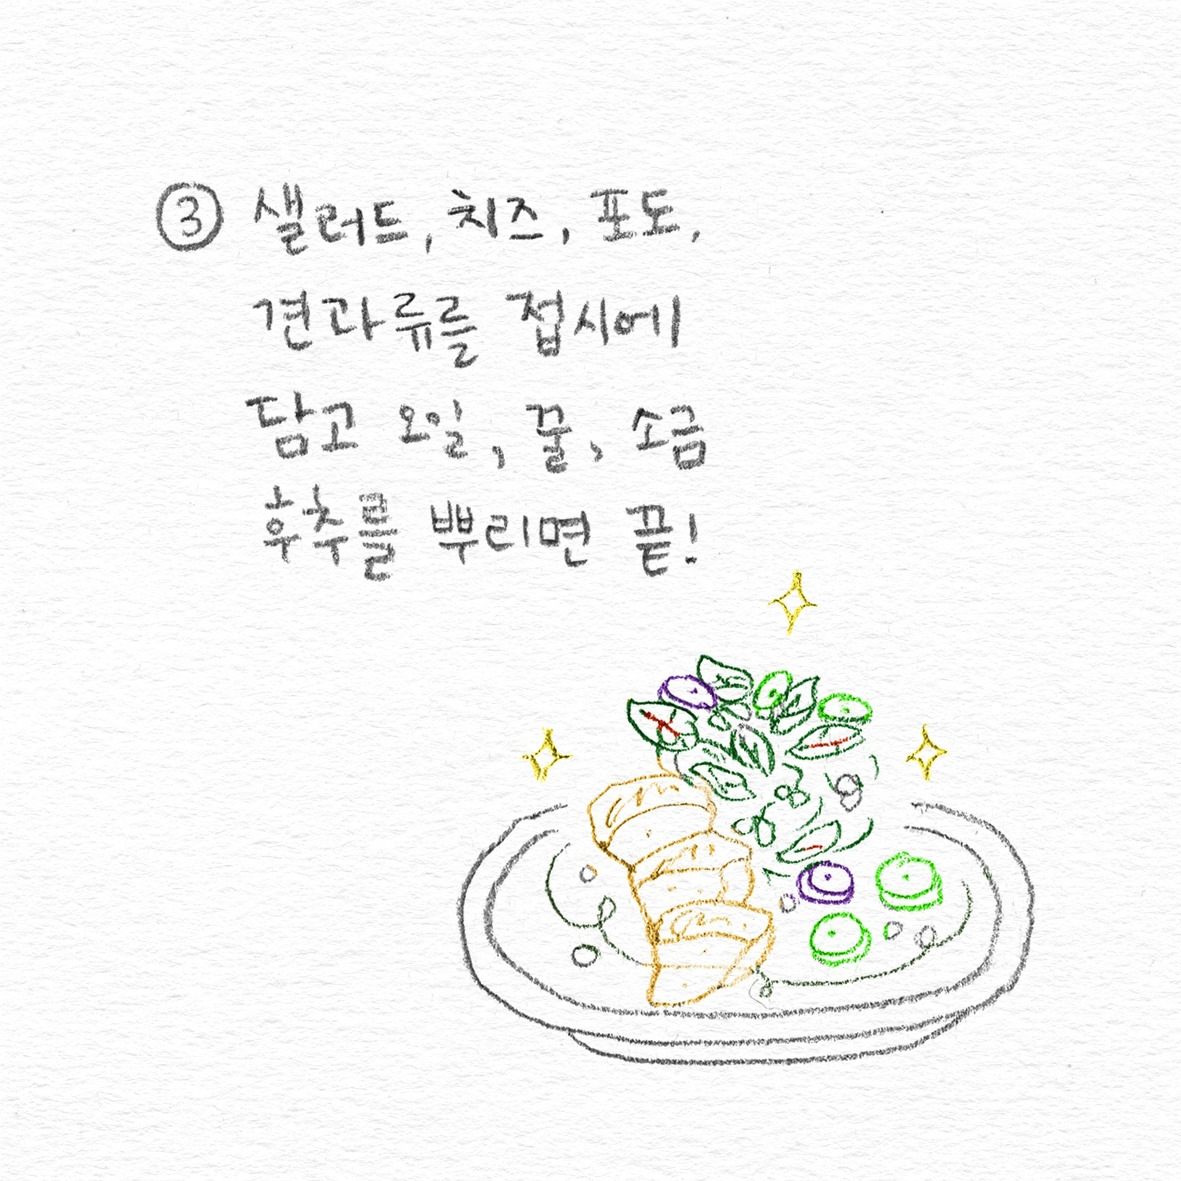 ③ 샐러드, 치즈, 포도,
견과류를 접시에
담고 오일, 꿀, 소금
후추를 뿌리면 끝!